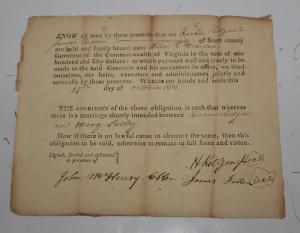 KNOW all men by these presents that we Hiram Kilgore &
James Fullen of Scott county
are held and firmly bound unto Wilson C. Nicholas
Governor of the Commonwealth of Virginia in the sum of one
hundred and fifty dollars: to which payment well and truly to be
made to the said Governor and his successors in office, we bind
ourselves, our heirs, executors and administrators jointly and
severally by these presents. Witness our hands and seals this
15th day of 1816
THE CONDITION of the above obligation is such that whereas
there is a marriage shortly intended between Hiram Kilgore
and Mary
Now if there is no lawful cause to obstruct the same, then this
obligation to be void, otherwise to remain in full force and virtue.
Signed, Sealed and delivered
in presence of
H Kilgore Seal
John McHenry
James Fullen Seal